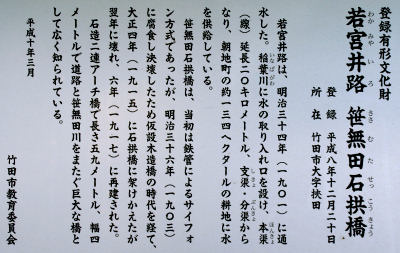 登録有形文化財
若宮井路 笹無田石拱橋
わかみやいろ ささむたせっこうきょう
登録 平成八年十二月二十日
所在 竹田市大字挟田
若宮井路は、明治三十四年（一九〇一）に通
水した。稲葉川に水の取り入れ口を設け、本渠
いなばがわ ほんきょ
（線）延長二〇キロメートル、支渠・分渠から
しきょ ぶんきょ
なり、朝地町の約一三四ヘクタールの耕地に水
を供給している。
笹無田石拱橋は、当初は鉄管によるサイフォ
ン方式であったが、明治三十六年（一九〇三）
に腐食し決壊したため仮設木造橋の時代を経て、
大正四年（一九一五）に石拱橋に架けかえたが
翌年に壊れ、六年（一九一七）に再建された。
石造二連アーチ橋で長さ五九メートル、幅四
メートルで道路と笹無田川をまたぐ巨大な橋と
して広く知られている。
平成十年三月
竹田市教育委員会